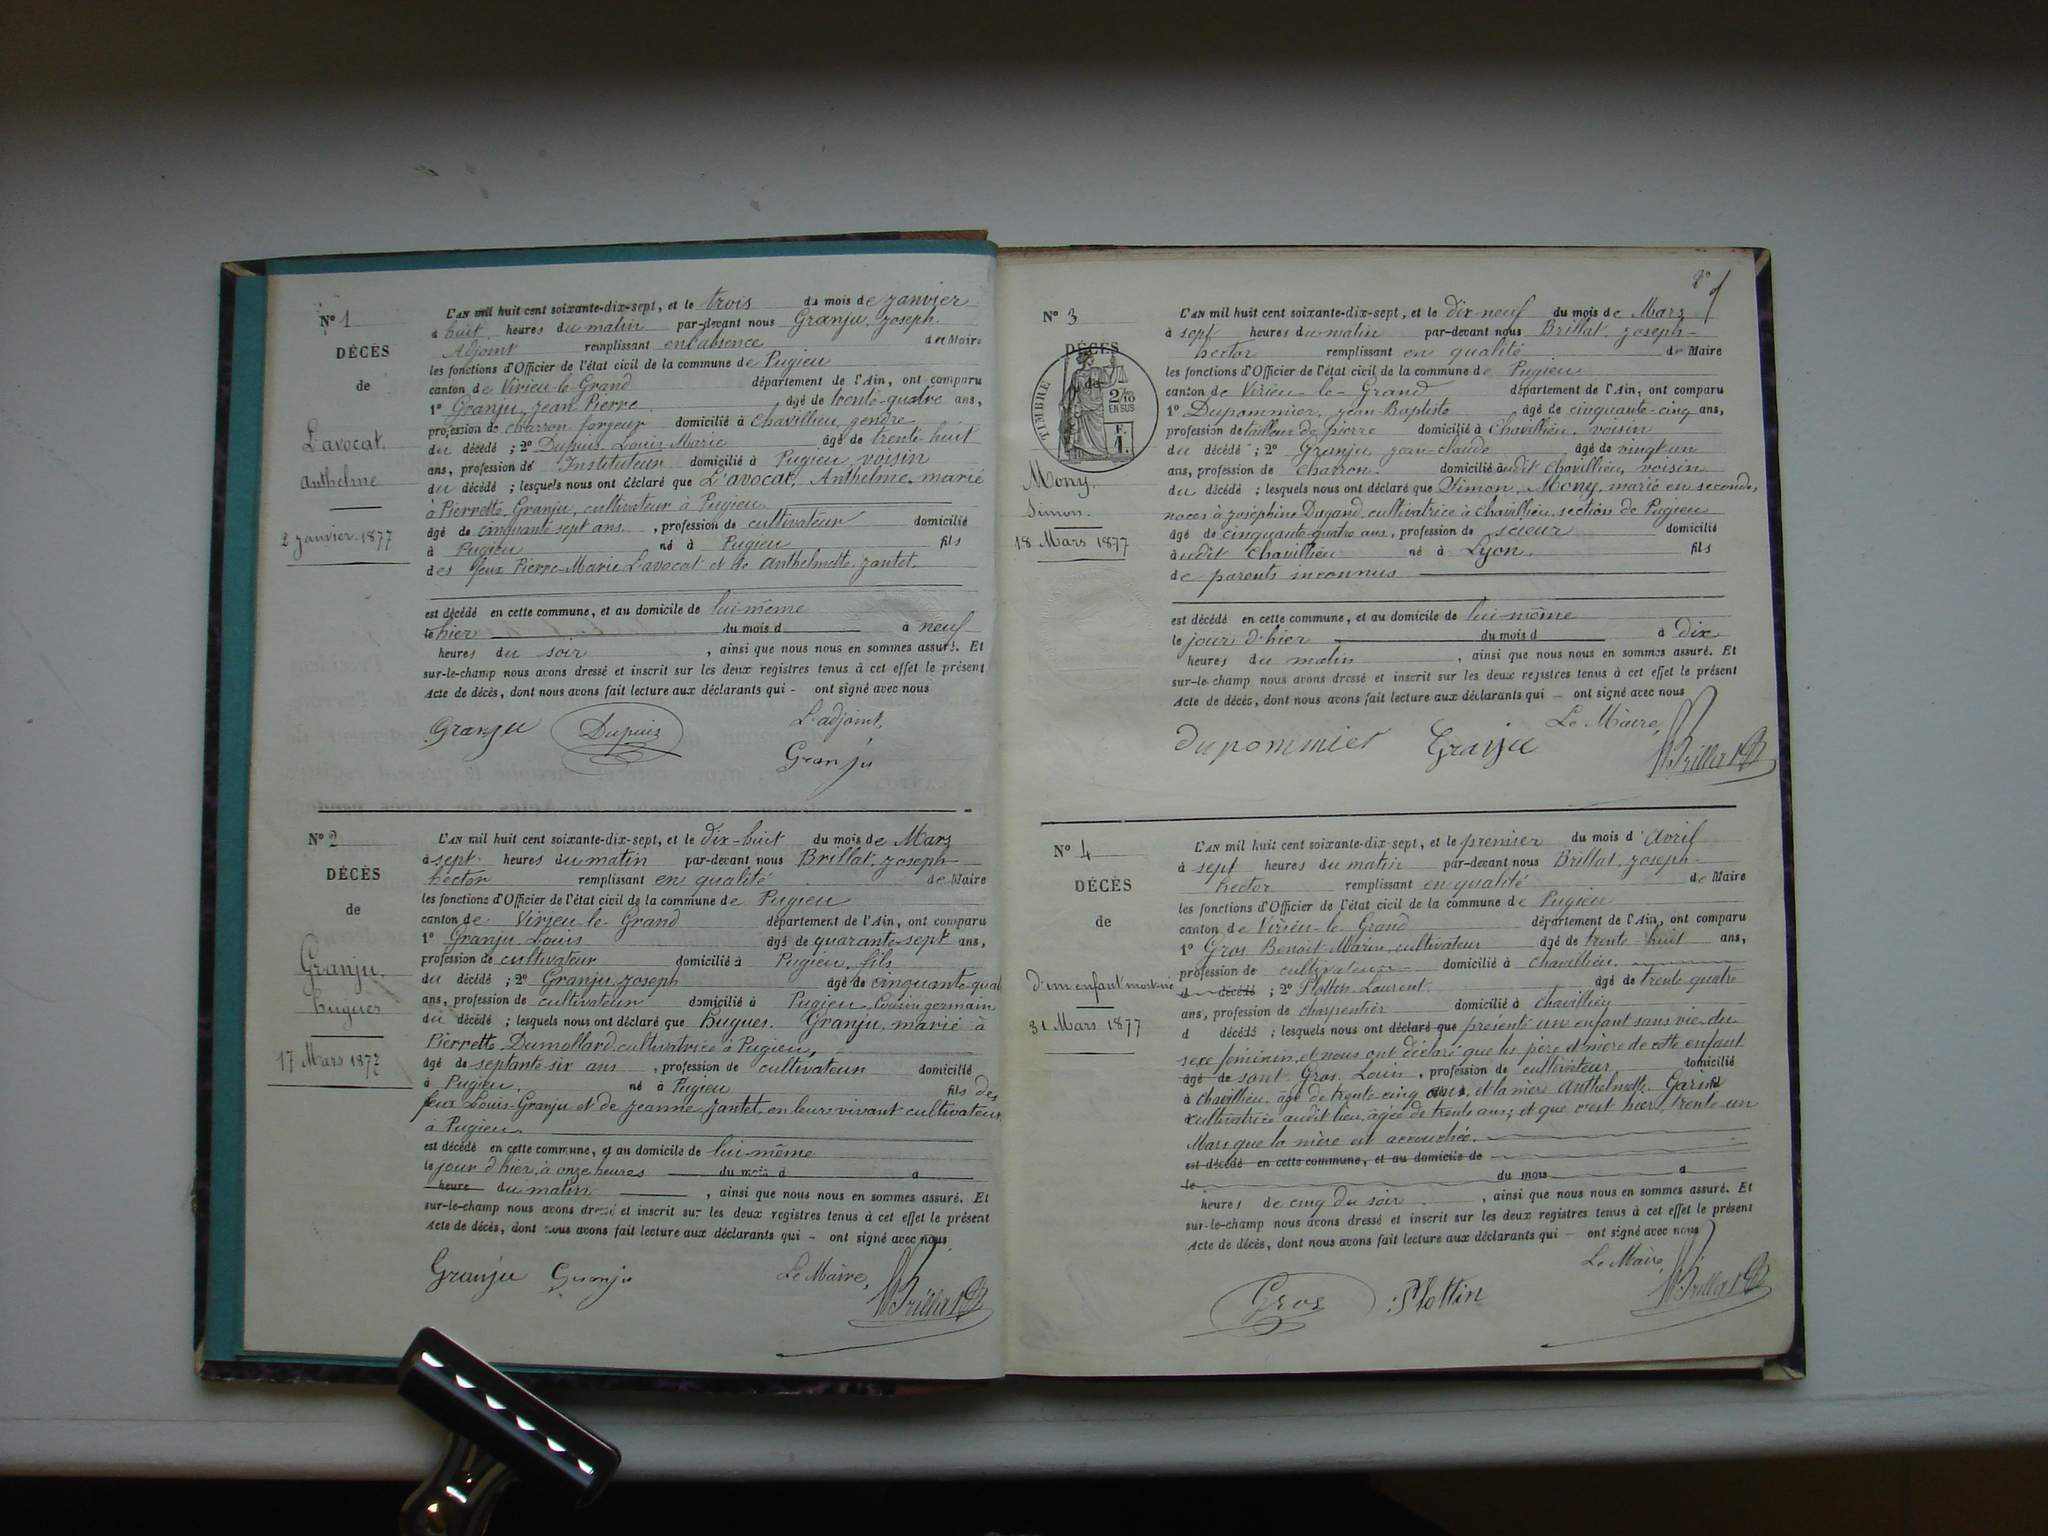 N° 1
DÉCÈS
de
L'avocat
Anthelme
2 janvier 1877
L'AN mil huit cent soixante-dix-sept, et le trois du mois de janvier
à huit heures du matin par-devant nous Granju, Joseph.
Adjoint remplissant en l'absence de Maire
les fonctions d'Officier de l'état civil de la commune de Pugieu
canton de Virieu-le-Grand département de l'Ain, ont comparu
1° Granju Jean Pierre âgé de trente-quatre ans,
profession de charron forgeur domicilié à Chavillieu, gendre
du décédé ; 2° Dupuis Louis Marie âgé de trente huit
ans, profession de Instituteur domicilié à Pugieu voisin
du décédé ; lesquels nous ont déclaré que L'avocat, Anthelme, marié
à Pierrette Granju, cultivateur à Pugieu
âgé de cinquante sept ans, profession de cultivateur domicilié
à Pugieu né à Pugieu fils
des feux Pierre-Marie L'avocat et de Anthelmette Jantet.
est décédé en cette commune, et au domicile de lui-même
le hier du mois d à neuf
heures du soir, ainsi que nous nous en sommes assuré. Et
sur-le-champ nous avons dressé et inscrit sur les deux registres tenus à cet effet le présent
Acte de décès, dont nous avons fait lecture aux déclarants qui - ont signé avec nous
L'adjoint,
Granju Dupuis Granju
N° 2
DÉCÈS
de
Granju
hugues
17 Mars 1877
L'AN mil huit cent soixante-dix-sept, et le dix-huit du mois de Mars
à sept heures du matin par-devant nous Brillat, Joseph-
hector remplissant en qualité de Maire
les fonctions d'Officier de l'état civil de la commune de Pugieu
canton de Virieu-le-Grand département de l'Ain, ont comparu
1° Granju Louis âgé de quarante-sept ans,
profession de cultivateur domicilié à Pugieu, fils
du décédé ; 2° Granju Joseph âgé de cinquante-quat
ans, profession de cultivateur domicilié à Pugieu, Cousin germain
du décédé ; lesquels nous ont déclaré que hugues. Granju, marié à
Pierrette Dumollard cultivatrice à Pugieu,
âgé de septante-six ans, profession de cultivateur domicilié
à Pugieu, né à Pugieu fils des
feux Louis-Granju et de Jeanne Jantet, en leurs vivant cultivateurs
à Pugieu
est décédé en cette commune, et au domicile de lui-même
le jour d'hier, à onze heures du mois d à
heure du matin, ainsi que nous nous en sommes assuré. Et
sur-le-champ nous avons dressé et inscrit sur les deux registres tenus à cet effet le présent
Acte de décès, dont nous avons fait lecture aux déclarants qui - ont signé avec nous
Granju Granju Le Maire,
Brillat
N° 3
DÉCÈS
de
TIMBRE
2/10
EN SUS
F.
1.
Mony.
Simon.
18 Mars 1877
L'AN mil huit cent soixante-dix-sept, et le dix-neuf du mois de Mars
à sept heures du matin par-devant nous Brillat, Joseph-
hector remplissant en qualité de Maire
les fonctions d'Officier de l'état civil de la commune de Pugieu
canton de Virieu-le-Grand département de l'Ain, ont comparu
1° Dupommier, Jean-Baptiste âgé de cinquante-cinq ans,
profession de tailleur de pierre domicilié à Chavillieu, voisin
du décédé ; 2° Granju Jean-claude âgé de vingt un
ans, profession de charron- domicilié audit Chavillieu, voisin
du décédé ; lesquels nous ont déclaré que Simon, Mony, marié en secondes
noces à Joséphine Dugand cultivatrice à Chavillieu, section de Pugieu
âgé de cinquante-quatre ans, profession de scieur domicilié
audit Chavillieu né à Lyon, fils
de parents inconnus
est décédé en cette commune, et au domicile de lui-même
le jour d'hier du mois d à dix
heures du matin, ainsi que nous nous en sommes assuré. Et
sur-le-champ nous avons dressé et inscrit sur les deux registres tenus à cet effet le présent
Acte de décès, dont nous avons fait lecture aux déclarants qui - ont signé avec nous
Le Maire,
dupommier Granju Brillat
N° 4
DÉCÈS
de
d'un enfant mort-né
31 Mars 1877
L'AN mil huit cent soixante-dix-sept, et le premier du mois d'avril
à sept heures du matin par-devant nous Brillat, Joseph-
hector remplissant en qualité de Maire
les fonctions d'Officier de l'état civil de la commune de Pugieu
canton de Virieu-le-Grand département de l'Ain, ont comparu
1° Gros, Benoit Marin cultivateur âgé de trente huit ans,
profession de cultivateur domicilié à Chavillieu.
d décédé ; 2° Plottin Laurent. âgé de trente-quatre
ans, profession de charpentier domicilié à Chavillieu
d décédé ; lesquels nous ont déclaré que présenté un enfant sans vie du
sexe féminin, et nous ont déclaré que les père et mère de cette enfant
âgé de sont Gros. Louis, profession de cultivateur domicilié
à Chavillieu, âgé de trente-cinq ans, et la mère Anthelmette. Garin fil
cultivatrice audit lieu, agée de trente ans; et que c'est hier, trente-un
Mars que la mère est accouchée.
est décédé en cette commune, et au domicile de
le du mois à
heures de cinq du soir, ainsi que nous nous en sommes assuré. Et
sur-le-champ nous avons dressé et inscrit sur les deux registres tenus à cet effet le présent
Acte de décès, dont nous avons fait lecture aux déclarants qui - ont signé avec nous
Le Maire,
Gros Plottin Brillat